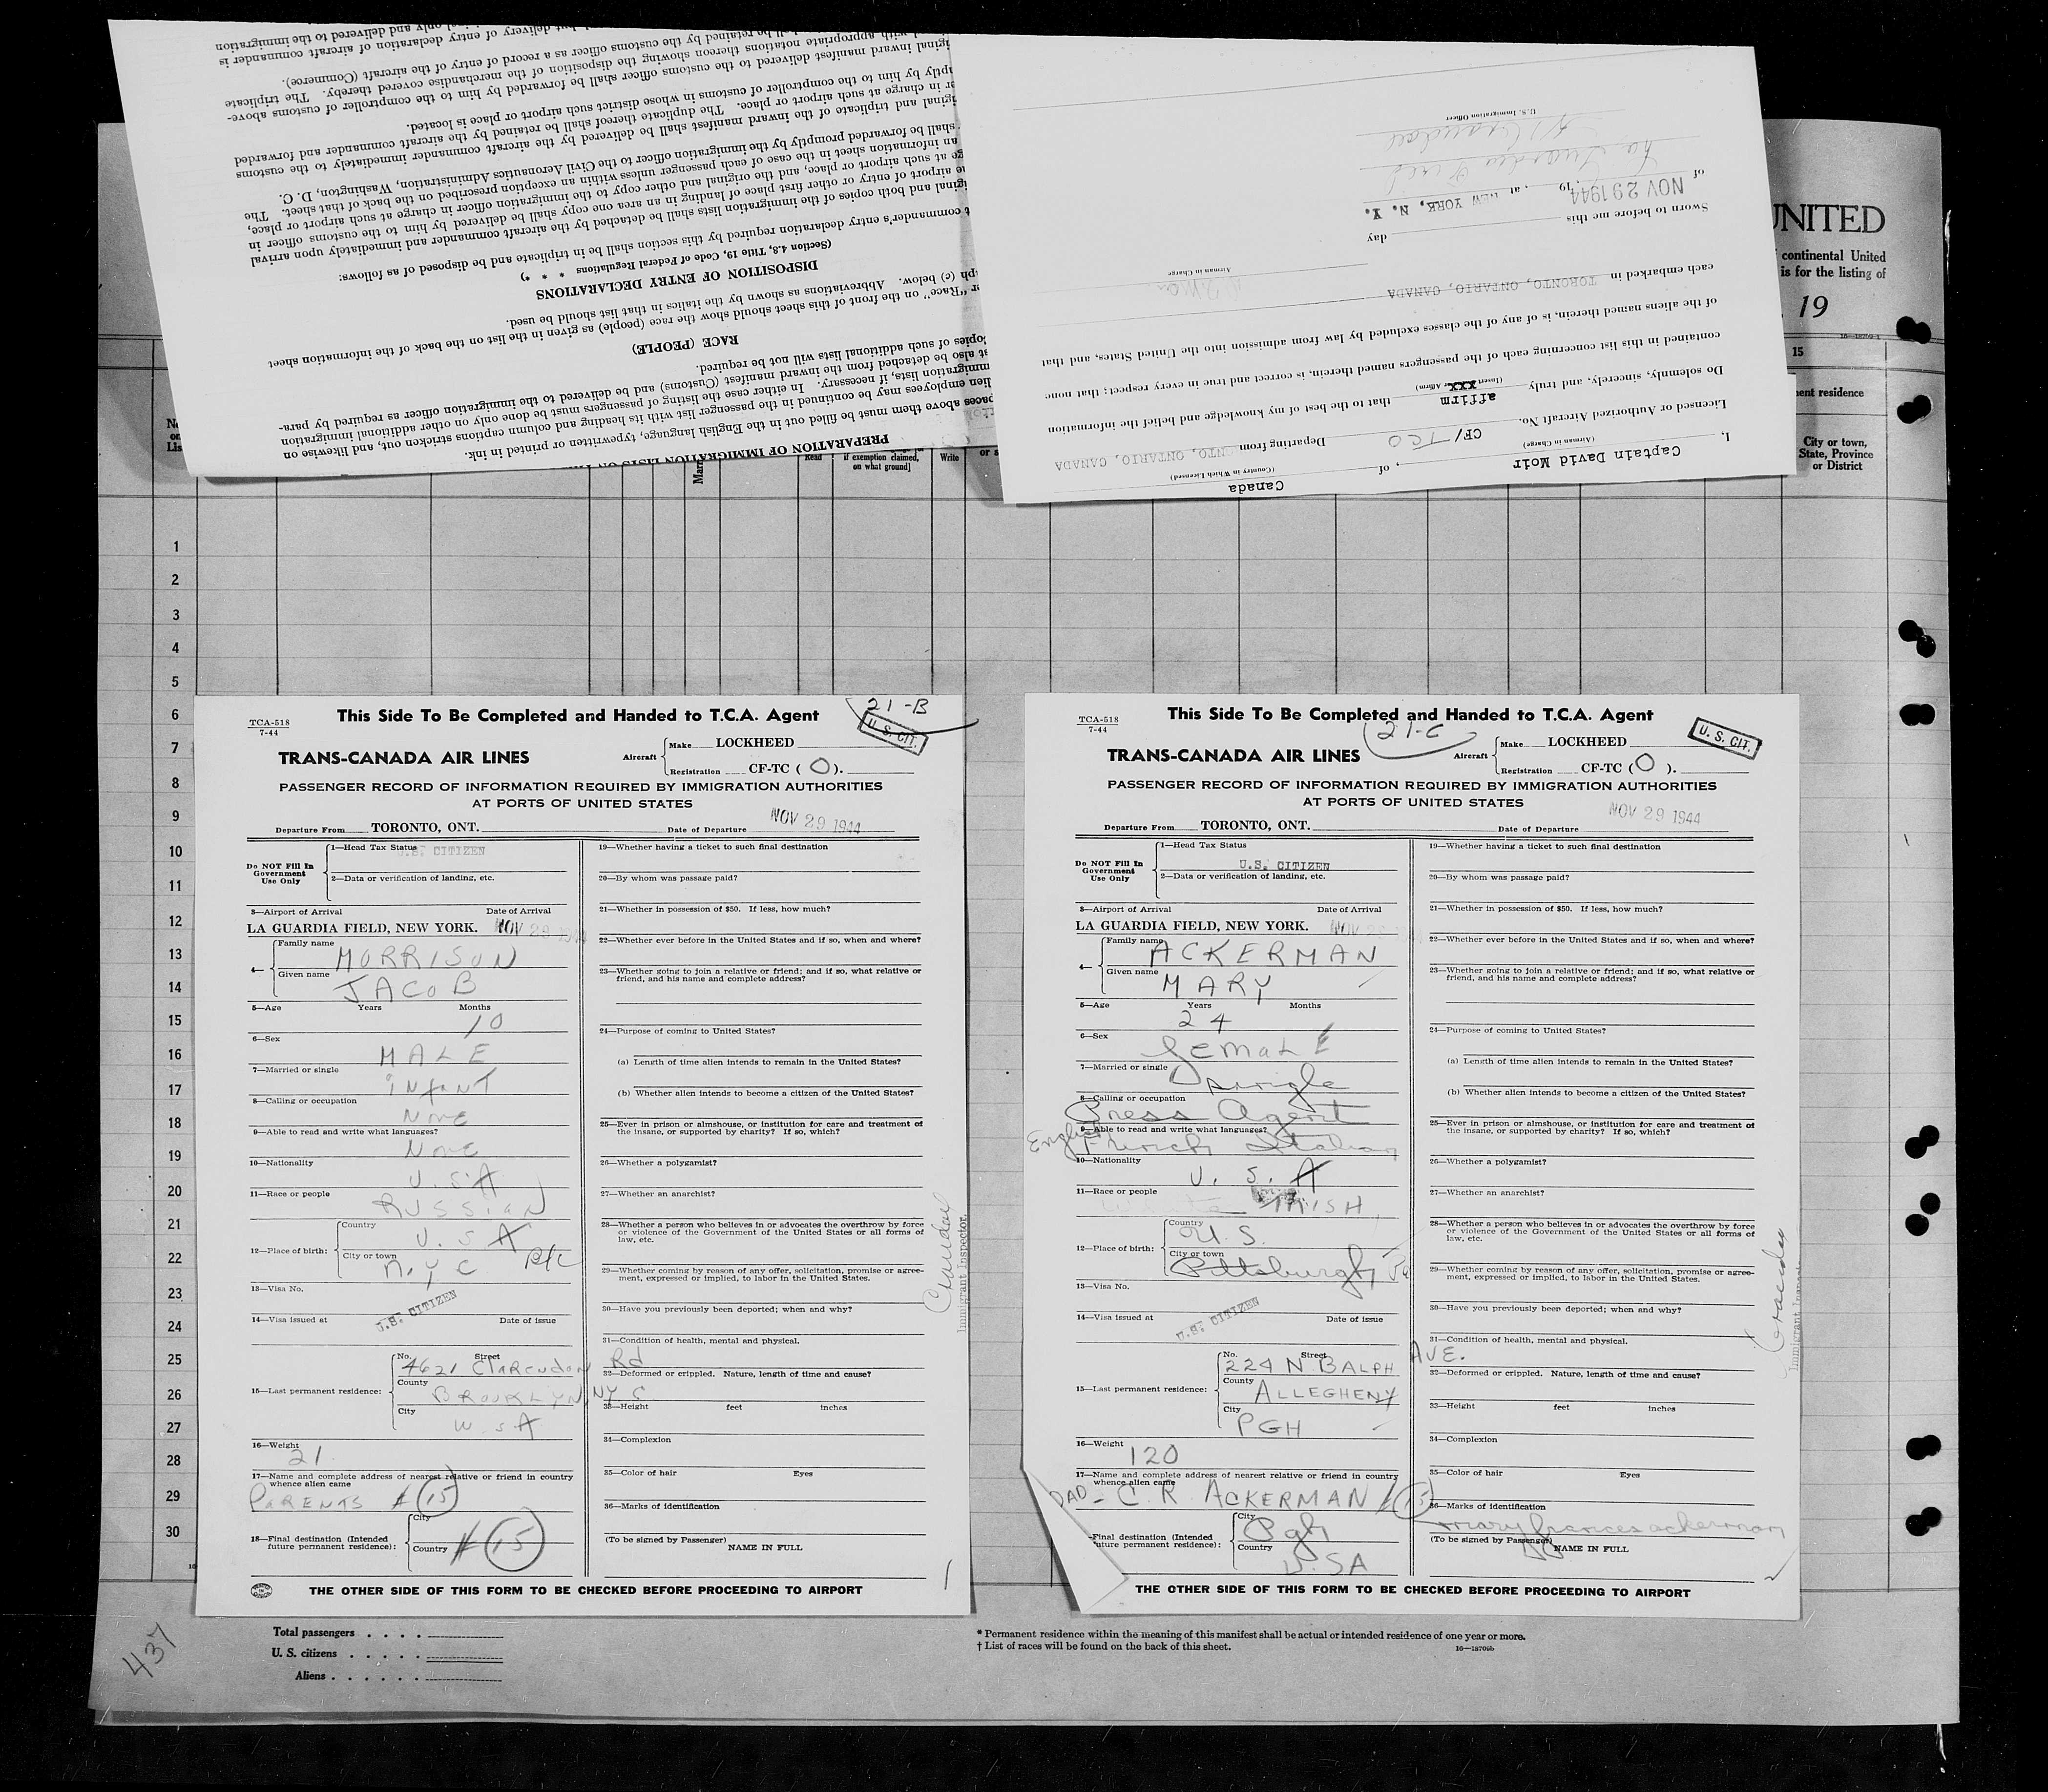 only and delivered to the immigration
delivery of entry declaration of aircraft commander is
be retained by the customs officer as a record of entry of the aircraft (Commerce).
with appropriate notations thereon showing the disposition of the merchandise covered thereby. The triplicate
inward manifest delivered to the customs officer shall be forwarded by him to the comptroller of customs above-
by him to the comptroller of customs in whose district such airport or place is located.
in charge at such airport or place. The duplicate thereof shall be retained by the aircraft commander and forwarded
and triplicate of the inward manifest shall be delivered by the aircraft commander immediately to the customs
shall be forwarded promptly by the immigration officer to the Civil Aeronautics Administration, Washington, D. C.
an information sheet in the case of each passenger unless within an exception prescribed on the back of that sheet. The
at such airport or place, and the original and other copy to the immigration officer in charge at such airport or place,
airport of entry or other first place of landing in an area one copy shall be delivered by him to the customs officer in
and both copies of the immigration lists shall be detached by the aircraft commander and immediately upon arrival
commander's entry declaration required by this section shall be in triplicate and be disposed of as follows:
(Section 4.8, Title 19, Code of Federal Regulations * * *)
DISPOSITION OF ENTRY DECLARATIONS
(c) below. Abbreviations as shown by the italics in that list should be used.
"Race" on the front of this sheet should show the race (people) as given in the list on the back of the information sheet
RACE (PEOPLE)
of such additional lists will not be required.
also be detached from the inward manifest (Customs) and be delivered to the immigration officer as required by para-
lists, if necessary. In either case the listing of passengers must be done only on other additional immigration
employees may be continued in the passenger list with its heading and column captions stricken out, and likewise on
above them must be filled out in the English language, typewritten or printed in ink.
PREPARATION OF IMMIGRATION LISTS ON
I, Captain David Moir, of Canada
(Airman in Charge) (Country in Which Licensed)
Licensed or Authorized Aircraft No. CF/TCO Departing from TORONTO, ONTARIO, CANADA
Do solemnly, sincerely, and truly affirm that to the best of my knowledge and belief the information
(Insert xxx or Affirm)
contained in this list concerning each of the passengers named therein, is correct and true in every respect; that none
of the aliens named therein, is of any of the classes excluded by law from admission into the United States, and that
each embarked in TORONTO, ONTARIO, CANADA
Airman in Charge
Sworn to before me this day
of NOV 29 1944, 19 , at NEW YORK, N. Y.
La Guardia Field
U. S. Immigration Officer
UNITED
continental United
is for the listing of
19
16—18709-1
15
residence
City or town,
State, Province
or District
Read
if exemption claimed,
on what ground]
Write
1
2
3
4
5
6
7
8
9
10
11
12
13
14
15
16
17
18
19
20
21
22
23
24
25
26
27
28
29
30
TCA-518
7-44
This Side To Be Completed and Handed to T.C.A. Agent
21-B
U. S. CIT.
TRANS-CANADA AIR LINES
Aircraft
Make LOCKHEED
Registration CF-TC ( O ).
PASSENGER RECORD OF INFORMATION REQUIRED BY IMMIGRATION AUTHORITIES
AT PORTS OF UNITED STATES
Departure From TORONTO, ONT. Date of Departure NOV 29 1944
Do NOT Fill In
Government
Use Only
1—Head Tax Status U.S. CITIZEN
2—Data or verification of landing, etc.
3—Airport of Arrival Date of Arrival
LA GUARDIA FIELD, NEW YORK. NOV 29 1944
4— Family name MORRISON
Given name JACOB
5—Age Years Months 10
6—Sex MALE
7—Married or single INFANT
8—Calling or occupation NONE
9—Able to read and write what languages? NONE
10—Nationality U.S.A
11—Race or people RUSSIAN
12—Place of birth: Country U.S.A
City or town N.Y.C
13—Visa No.
U.S. CITIZEN
14—Visa issued at Date of issue
15—Last permanent residence:
No. Street 4621 Clarendon Rd
County BROOKLYN, NYC
City U.S.A
16—Weight 21
17—Name and complete address of nearest relative or friend in country
whence alien came
PARENTS # 15
18—Final destination (Intended
future permanent residence):
City
Country # 15
19—Whether having a ticket to such final destination
20—By whom was passage paid?
21—Whether in possession of $50. If less, how much?
22—Whether ever before in the United States and if so, when and where?
23—Whether going to join a relative or friend; and if so, what relative or
friend, and his name and complete address?
24—Purpose of coming to United States?
(a) Length of time alien intends to remain in the United States?
(b) Whether alien intends to become a citizen of the United States?
25—Ever in prison or almshouse, or institution for care and treatment of
the insane, or supported by charity? If so, which?
26—Whether a polygamist?
27—Whether an anarchist?
28—Whether a person who believes in or advocates the overthrow by force
or violence of the Government of the United States or all forms of
law, etc.
29—Whether coming by reason of any offer, solicitation, promise or agree-
ment, expressed or implied, to labor in the United States.
30—Have you previously been deported; when and why?
31—Condition of health, mental and physical.
32—Deformed or crippled. Nature, length of time and cause?
33—Height feet inches
34—Complexion
35—Color of hair Eyes
36—Marks of identification
(To be signed by Passenger)
NAME IN FULL
Immigrant Inspector.
THE OTHER SIDE OF THIS FORM TO BE CHECKED BEFORE PROCEEDING TO AIRPORT
TCA-518
7-44
This Side To Be Completed and Handed to T.C.A. Agent
21-C
U. S. CIT.
TRANS-CANADA AIR LINES
Aircraft
Make LOCKHEED
Registration CF-TC ( O ).
PASSENGER RECORD OF INFORMATION REQUIRED BY IMMIGRATION AUTHORITIES
AT PORTS OF UNITED STATES
Departure From TORONTO, ONT. Date of Departure NOV 29 1944
Do NOT Fill In
Government
Use Only
1—Head Tax Status
U.S. CITIZEN
2—Data or verification of landing, etc.
3—Airport of Arrival Date of Arrival
LA GUARDIA FIELD, NEW YORK. NOV 29
4— Family name ACKERMAN
Given name MARY
5—Age Years Months
24
6—Sex Female
7—Married or single Single
8—Calling or occupation
Press Agent
9—Able to read and write what languages?
English French Italian
10—Nationality U.S.A
11—Race or people IRISH
12—Place of birth: Country U.S.
City or town Pittsburgh, Pa
13—Visa No.
U.S. CITIZEN
14—Visa issued at Date of issue
15—Last permanent residence:
No. Street 224 N BALPH AVE.
County ALLEGHENY
City PGH
16—Weight 120
17—Name and complete address of nearest relative or friend in country
whence alien came
DAD - C. R. ACKERMAN # 15
Final destination (Intended
future permanent residence):
City Pgh
Country U.S.A
19—Whether having a ticket to such final destination
20—By whom was passage paid?
21—Whether in possession of $50. If less, how much?
22—Whether ever before in the United States and if so, when and where?
23—Whether going to join a relative or friend; and if so, what relative or
friend, and his name and complete address?
24—Purpose of coming to United States?
(a) Length of time alien intends to remain in the United States?
(b) Whether alien intends to become a citizen of the United States?
25—Ever in prison or almshouse, or institution for care and treatment of
the insane, or supported by charity? If so, which?
26—Whether a polygamist?
27—Whether an anarchist?
28—Whether a person who believes in or advocates the overthrow by force
or violence of the Government of the United States or all forms of
law, etc.
29—Whether coming by reason of any offer, solicitation, promise or agree-
ment, expressed or implied, to labor in the United States.
30—Have you previously been deported; when and why?
31—Condition of health, mental and physical.
32—Deformed or crippled. Nature, length of time and cause?
33—Height feet inches
34—Complexion
35—Color of hair Eyes
36—Marks of identification
mary frances ackerman
(To be signed by Passenger)
NAME IN FULL
THE OTHER SIDE OF THIS FORM TO BE CHECKED BEFORE PROCEEDING TO AIRPORT
437
Total passengers
U. S. citizens
Aliens
* Permanent residence within the meaning of this manifest shall be actual or intended residence of one year or more.
† List of races will be found on the back of this sheet.
16—18709b